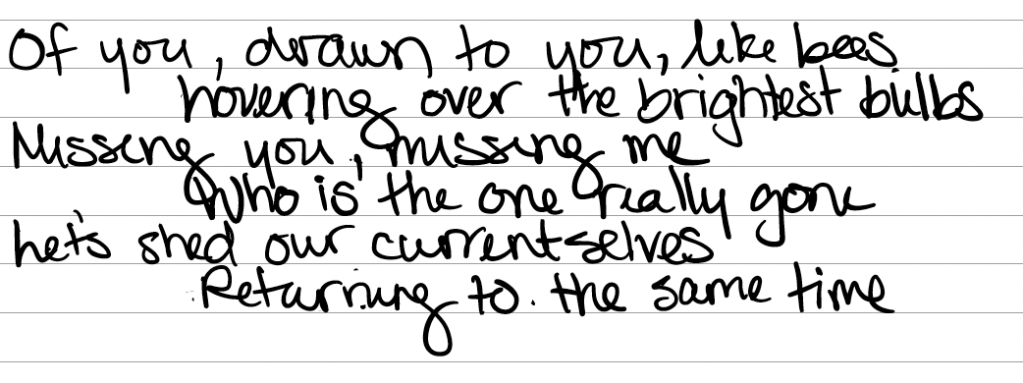 Of you, drawn to you, like bees
hovering over the brightest bulbs
Missing you, missing me
Who is the one really gone
Let's shed our current selves
Returning to the same time